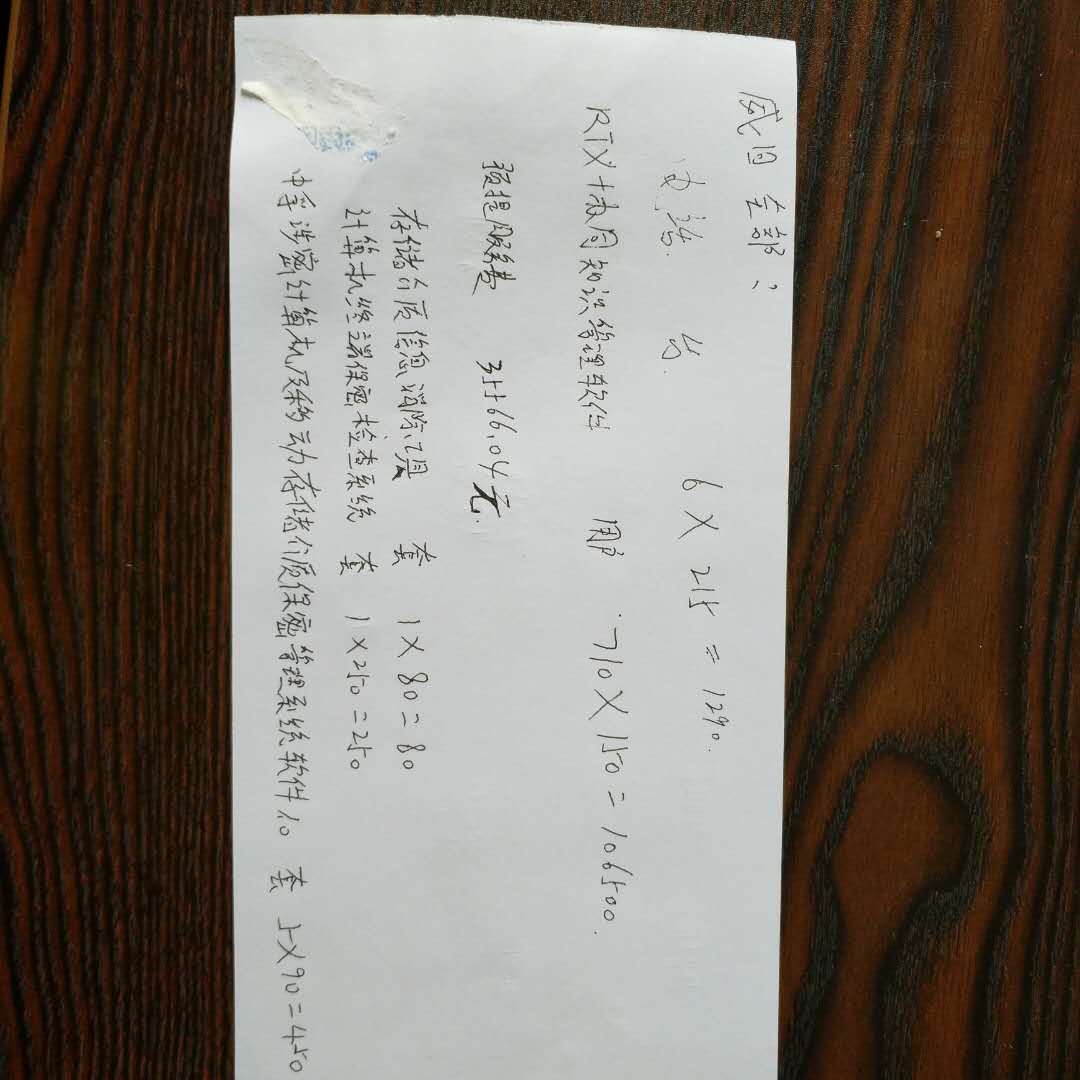 威日东部：
电话 台 6×215=1290.
RTX+腾讯通知识管理软件 用户 710×150=106500.
预提服务费 35566.04元.
存储介质信息消除工具 套 1×80=80
计算机终端保密检查系统 套 1×250=250
中孚涉密计算机及移动存储介质保密管理系统软件1.0 套 5×90=450